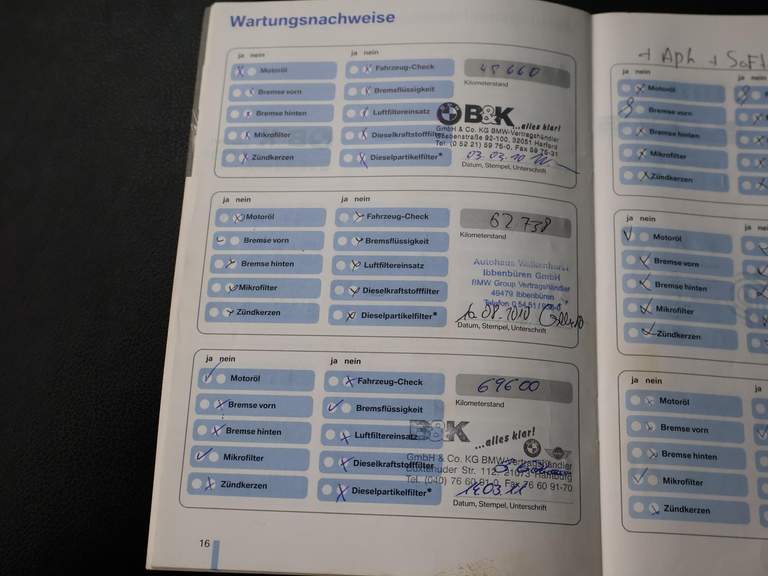 Wartungsnachweise
ja nein
ja nein
Motoröl
Fahrzeug-Check
48 660
Kilometerstand
Bremse vorn
Bremsflüssigkeit
Bremse hinten
Luftfiltereinsatz
B&K
...alles klar!
Mikrofilter
Dieselkraftstofffilter
GmbH & Co. KG BMW-Vertragshändler
92-100, 32051 Herford
Tel. (0 52 21) 59 76-0, Fax 59 76-31
Zündkerzen
Dieselpartikelfilter*
03.03.10
Datum, Stempel, Unterschrift
ja nein
ja nein
Motoröl
Fahrzeug-Check
62 738
Kilometerstand
Bremse vorn
Bremsflüssigkeit
Bremse hinten
Luftfiltereinsatz
Autohaus
Ibbenbüren GmbH
BMW Group Vertragshändler
49479 Ibbenbüren
Telefon
Mikrofilter
Dieselkraftstofffilter
Zündkerzen
Dieselpartikelfilter*
08.2010
Datum, Stempel, Unterschrift
ja nein
ja nein
Motoröl
Fahrzeug-Check
69600
Kilometerstand
Bremse vorn
Bremsflüssigkeit
Bremse hinten
Luftfiltereinsatz
B&K
...alles klar!
Mikrofilter
Dieselkraftstofffilter
GmbH & Co. KG BMW-Vertragshändler
Buxtehuder Str. 112, 21073 Hamburg
Tel. (040) 76 60 91-0, Fax 76 60 91-70
Zündkerzen
Dieselpartikelfilter*
14.03.11
Datum, Stempel, Unterschrift
16
+ Aph +
ja nein
ja
Motoröl
Bremse vorn
Bremse hinten
Mikrofilter
Zündkerzen
ja nein
ja
Motoröl
Bremse vorn
Bremse hinten
Mikrofilter
Zündkerzen
ja nein
ja
Motoröl
Bremse vorn
Bremse hinten
Mikrofilter
Zündkerzen